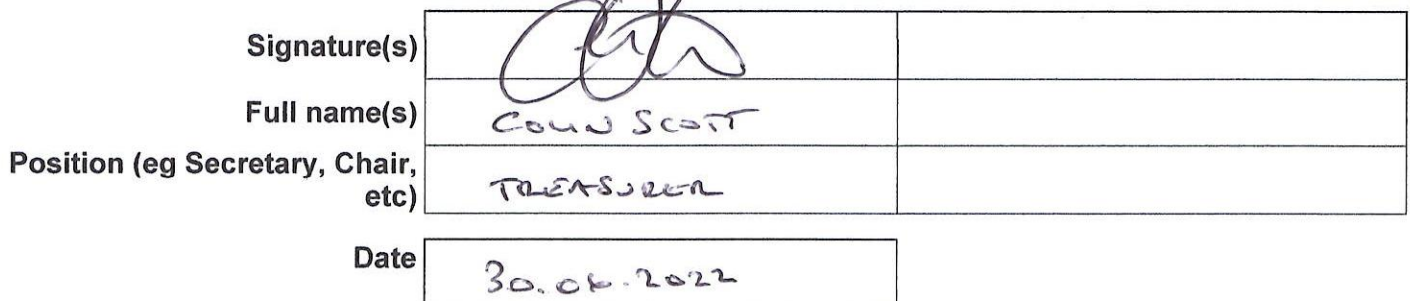 Signature(s)
Full name(s) COLIN SCOTT
Position (eg Secretary, Chair,
etc) TREASURER
Date 30.06.2022